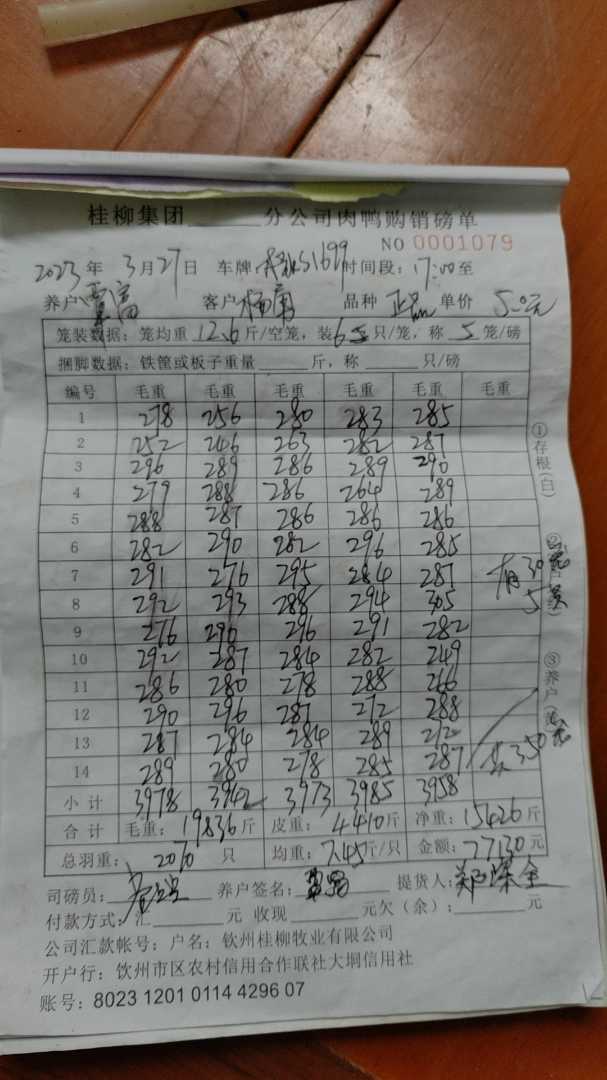 桂柳集团 分公司肉鸭购销磅单
NO 0001079
2023年3月27日 车牌: S1699 时间段: 17:00至
养户 客户 杨 品种 正品 单价 5.0元
笼装数据: 笼均重12.6斤/空笼, 装6 只/笼, 称5笼/磅
捆脚数据: 铁筐或板子重量 斤, 称 只/磅
编号 毛重 毛重 毛重 毛重 毛重 毛重
1 278 256 280 283 285
2 252 246 263 282 287
3 296 289 286 289 290
4 279 288 286 264 289
5 288 287 286 286 286
6 282 290 282 296 285
7 291 276 295 284 287
8 292 293 288 294 305
9 276 290 296 291 282
10 292 287 284 282 249
11 286 280 278 288 266
12 290 296 287 272 288
13 287 284 284 289 212
14 289 280 278 285 287
小计 3978 3942 3973 3985 3958
合计 毛重: 19836斤 皮重: 4410斤 净重: 15426斤
总羽重: 2070 只 均重: 7.45斤/只 金额: 77130元
司磅员: 养户签名: 提货人: 郑深全
付款方式: 汇 元 收现 元欠(余): 元
公司汇款帐号: 户名: 钦州桂柳牧业有限公司
开户行: 钦州市区农村信用合作联社大垌信用社
账号: 8023 1201 0114 4296 07
①存根(白)
②
③养户(
有30
共350